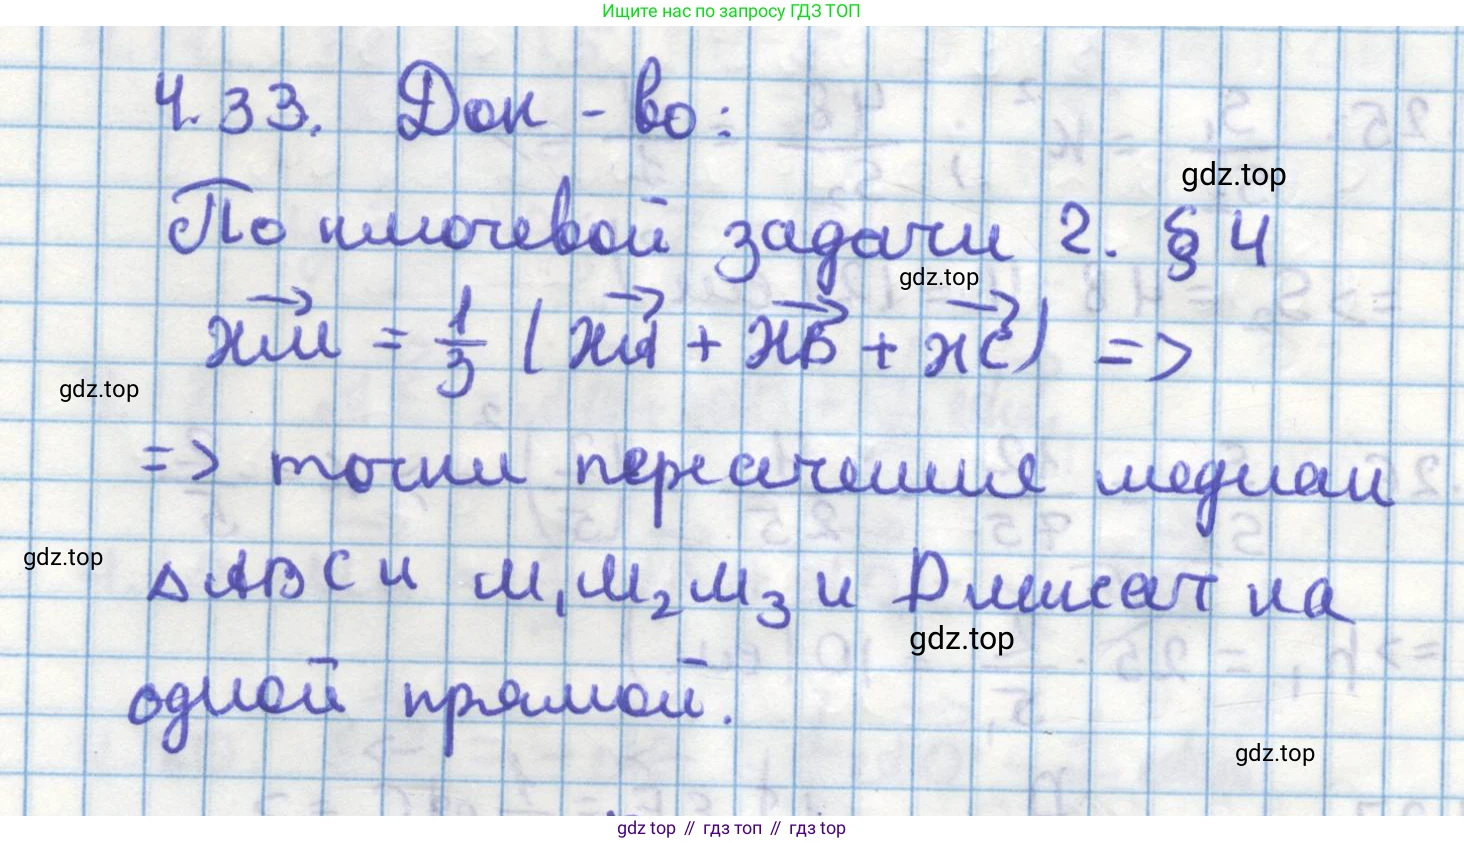 Ищите нас по запросу ГДЗ ТОП
4.33. Док-во:
gdz.top
По ключевой задачи 2. § 4
gdz.top
XM = 1/3 (XA + XB + XC) =>
gdz.top
=> точки пересечения медиан
gdz.top
△ABC и M₁M₂M₃ и D лежат на
gdz.top
одной прямой.
gdz.top
gdz top // гдз топ // гдз top